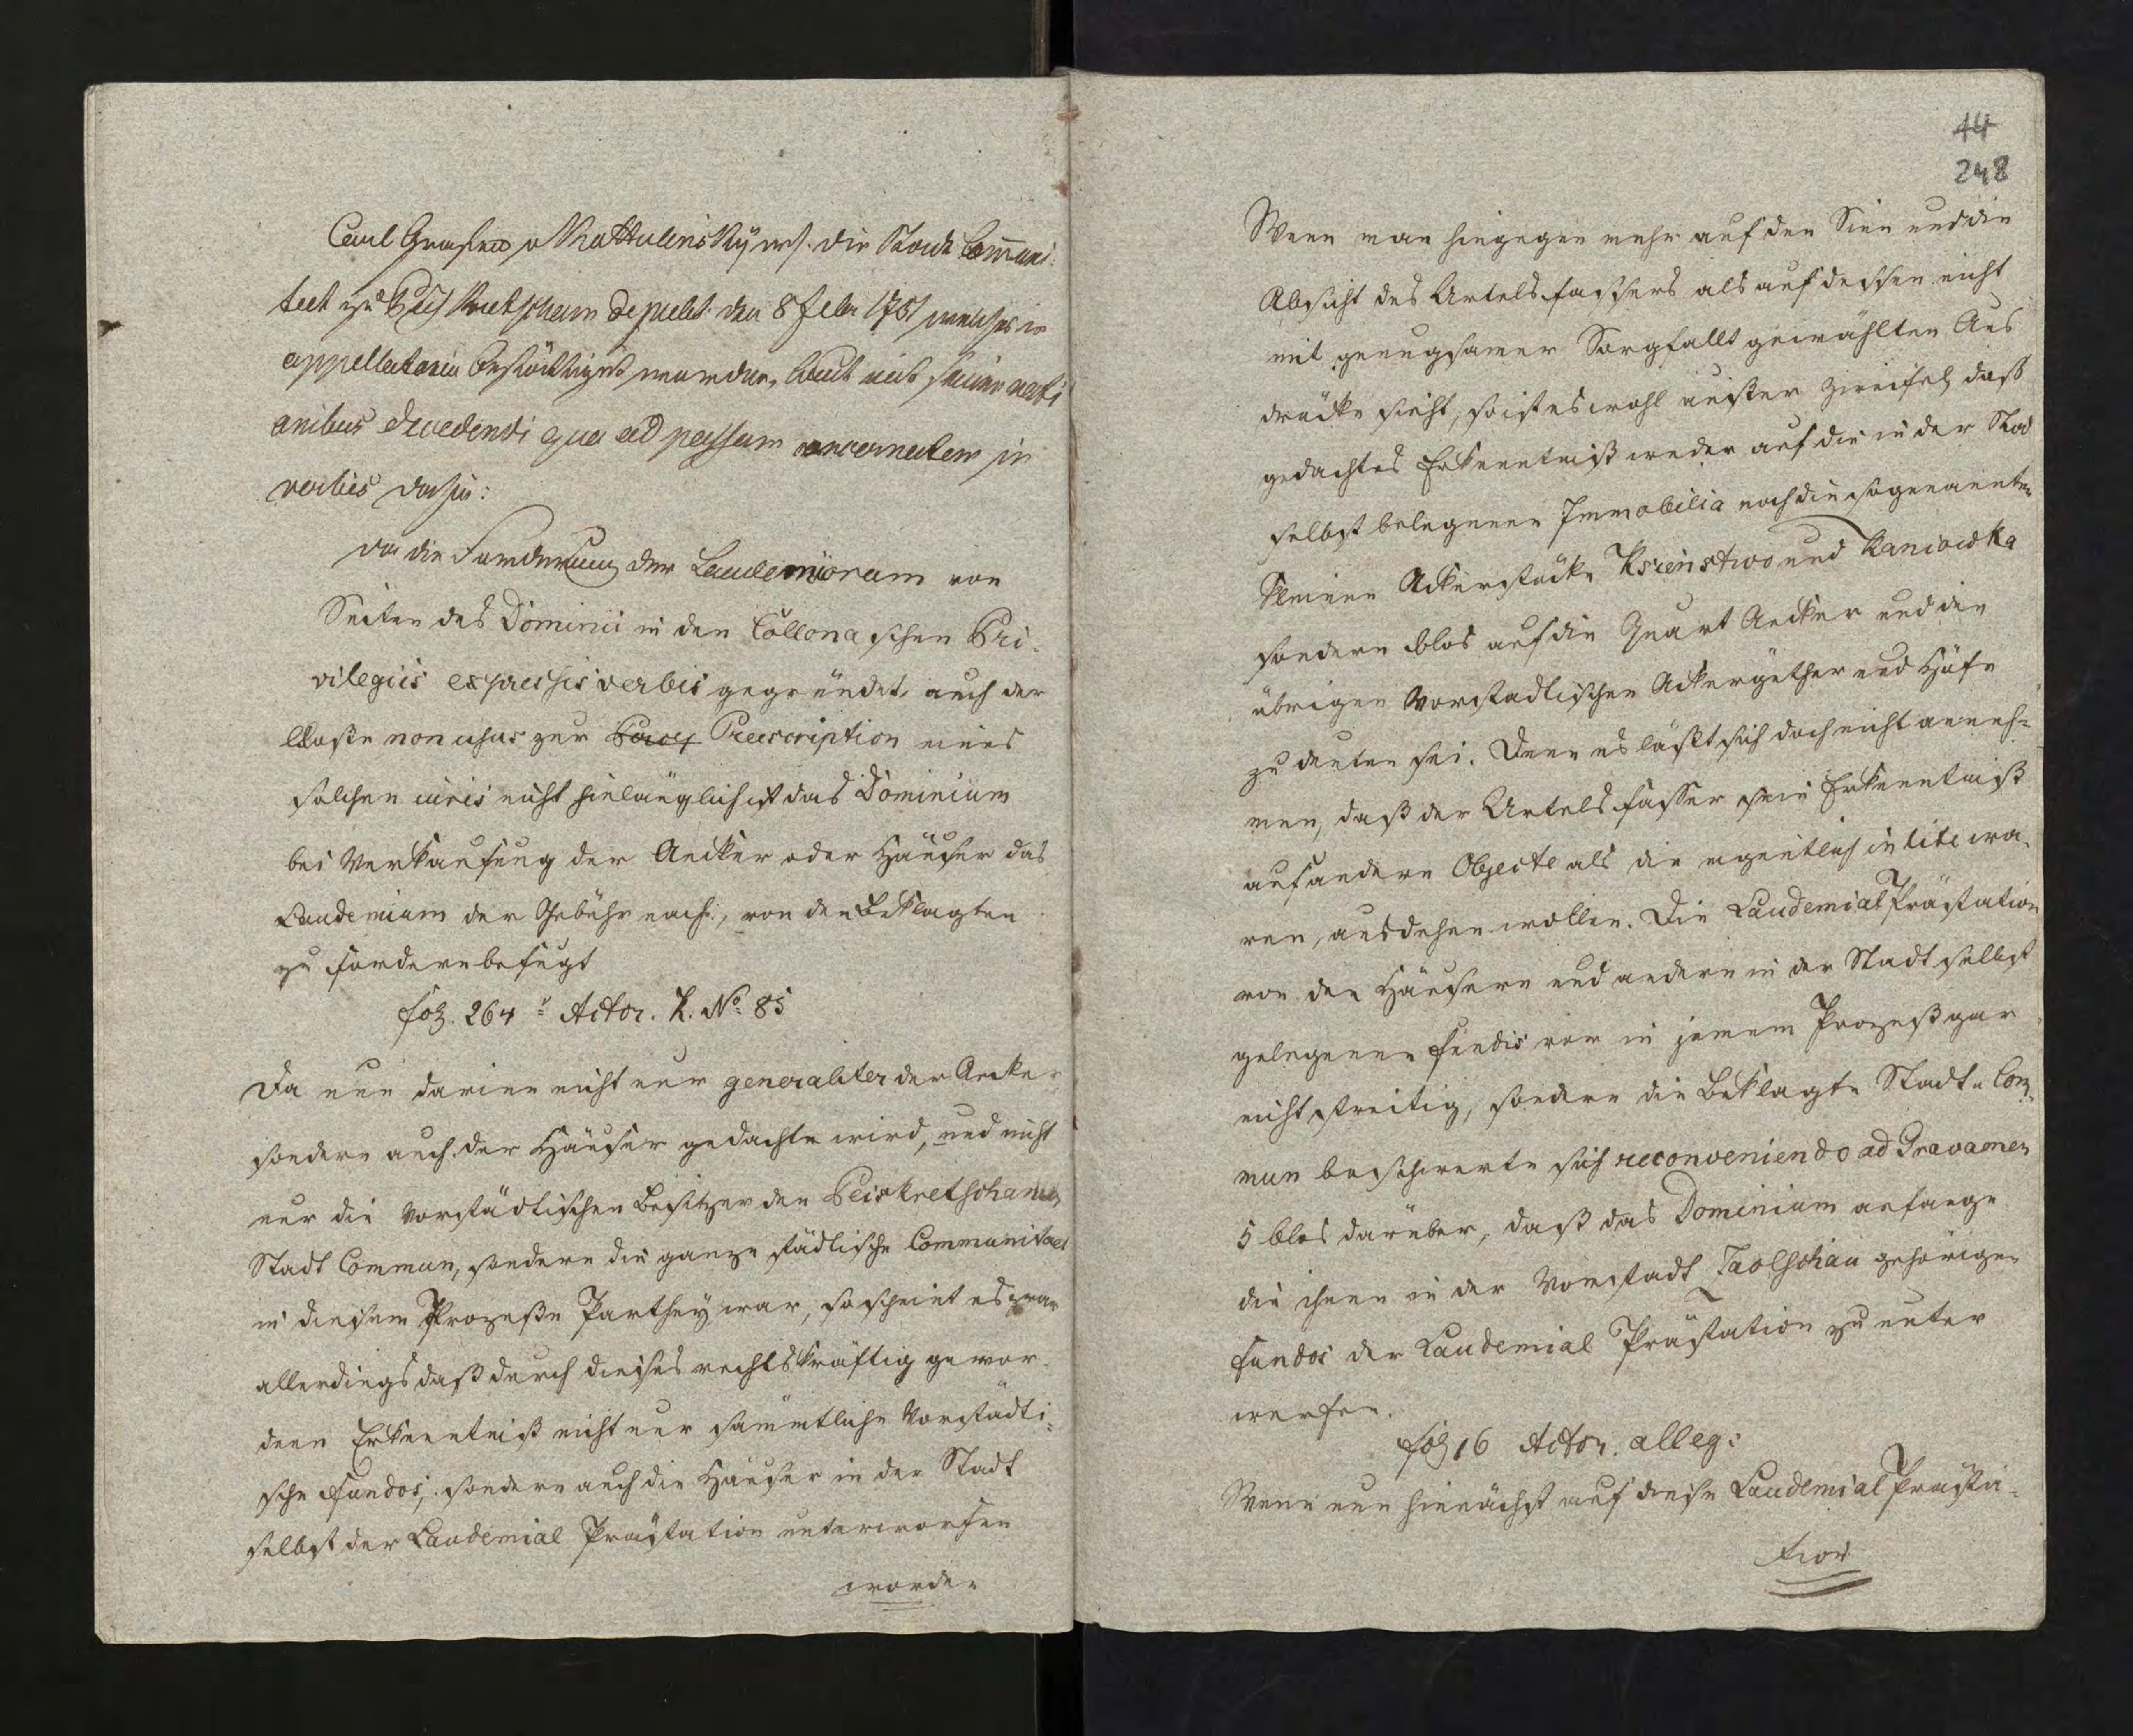 Carl Grafen v Kottulinsky wid. die Stadt Communi-
taet zu Peiskretscham de publ. den 8 Febr 1751 welches in
appellatoria bestättiget worden, laut mit seinen rati
onibus decedendi qua ad passum concernentem in
verbis dahin:
da die Forderung der Laudemiorum von
Seiten des Dominii in den Collonaschen Pri-
vilegiis expressis verbis gegründet, auch der
bloße non usus zur Praescription eines
solchen iuris nicht hinlänglich ist das Dominium
bei Verkaufung der Aecker oder Häuser das
Laudemium der Gebühr nach, von den Beklagten
zu fordern befugt
fol. 264 Actor. L. No. 85
Da nun darinn nicht nur generaliter der Aecker
sondern auch der Häuser gedacht wird, und nicht
nur die Vorstädtischen Besitzer der Peiskretschamer
Stadt Commun, sondern die ganze städtische Communitaet
in diesem Prozeße Parthey war, so scheint es zwar
allerdings daß durch dieses rechtskräftig gewor-
dene Erkenntniß nicht nur sämmtliche Vorstädti-
sche Fundos, sondern auch die Häuser in der Stadt
selbst der Laudemial Prästation unterworfen
worden
44
248
Wenn man hingegen mehr auf den Sinn und die
Absicht des Urtelsfaßers als auf dessen nicht
mit genugsamer Sorgfallt gewählten Aus
drücke sieht, so ist es wohl außer Zweifel daß
gedachtes Erkenntniß weder auf die in der Stad
selbst belegenen Immobilia noch die sogenannten
kleinen Ackerstücke Ksienstwo und Kaniowka
sondern blos auf die Quart Aecker und die
übrigen Vorstadtischen Ackergüther und Höfe
zu deuten sei. Denn es läßt sich doch nicht anneh-
men, daß der Urtelsfasser sein Erkenntniß
auf andere Objecte als die eigentlich in lite wa-
ren, ausdehnen wollen. Die Laudemial Prästation
von den Häusern und andern in der Stadt selbst
gelegenen Fundis war in jenem Prozeß gar
nicht streitig, sondern die Beklagte Stadt Com-
mun beschwerte sich reconveniendo ad Gravamen
5 blos darüber, daß das Dominium anfange
die ihnen in der Vorstadt gehörigen
Fundos der Laudemial Prästation zu unter
werfen.
fol 16 Actor. alleg:
Wenn nun hienächst auf diese Laudemial Prästa-
tion